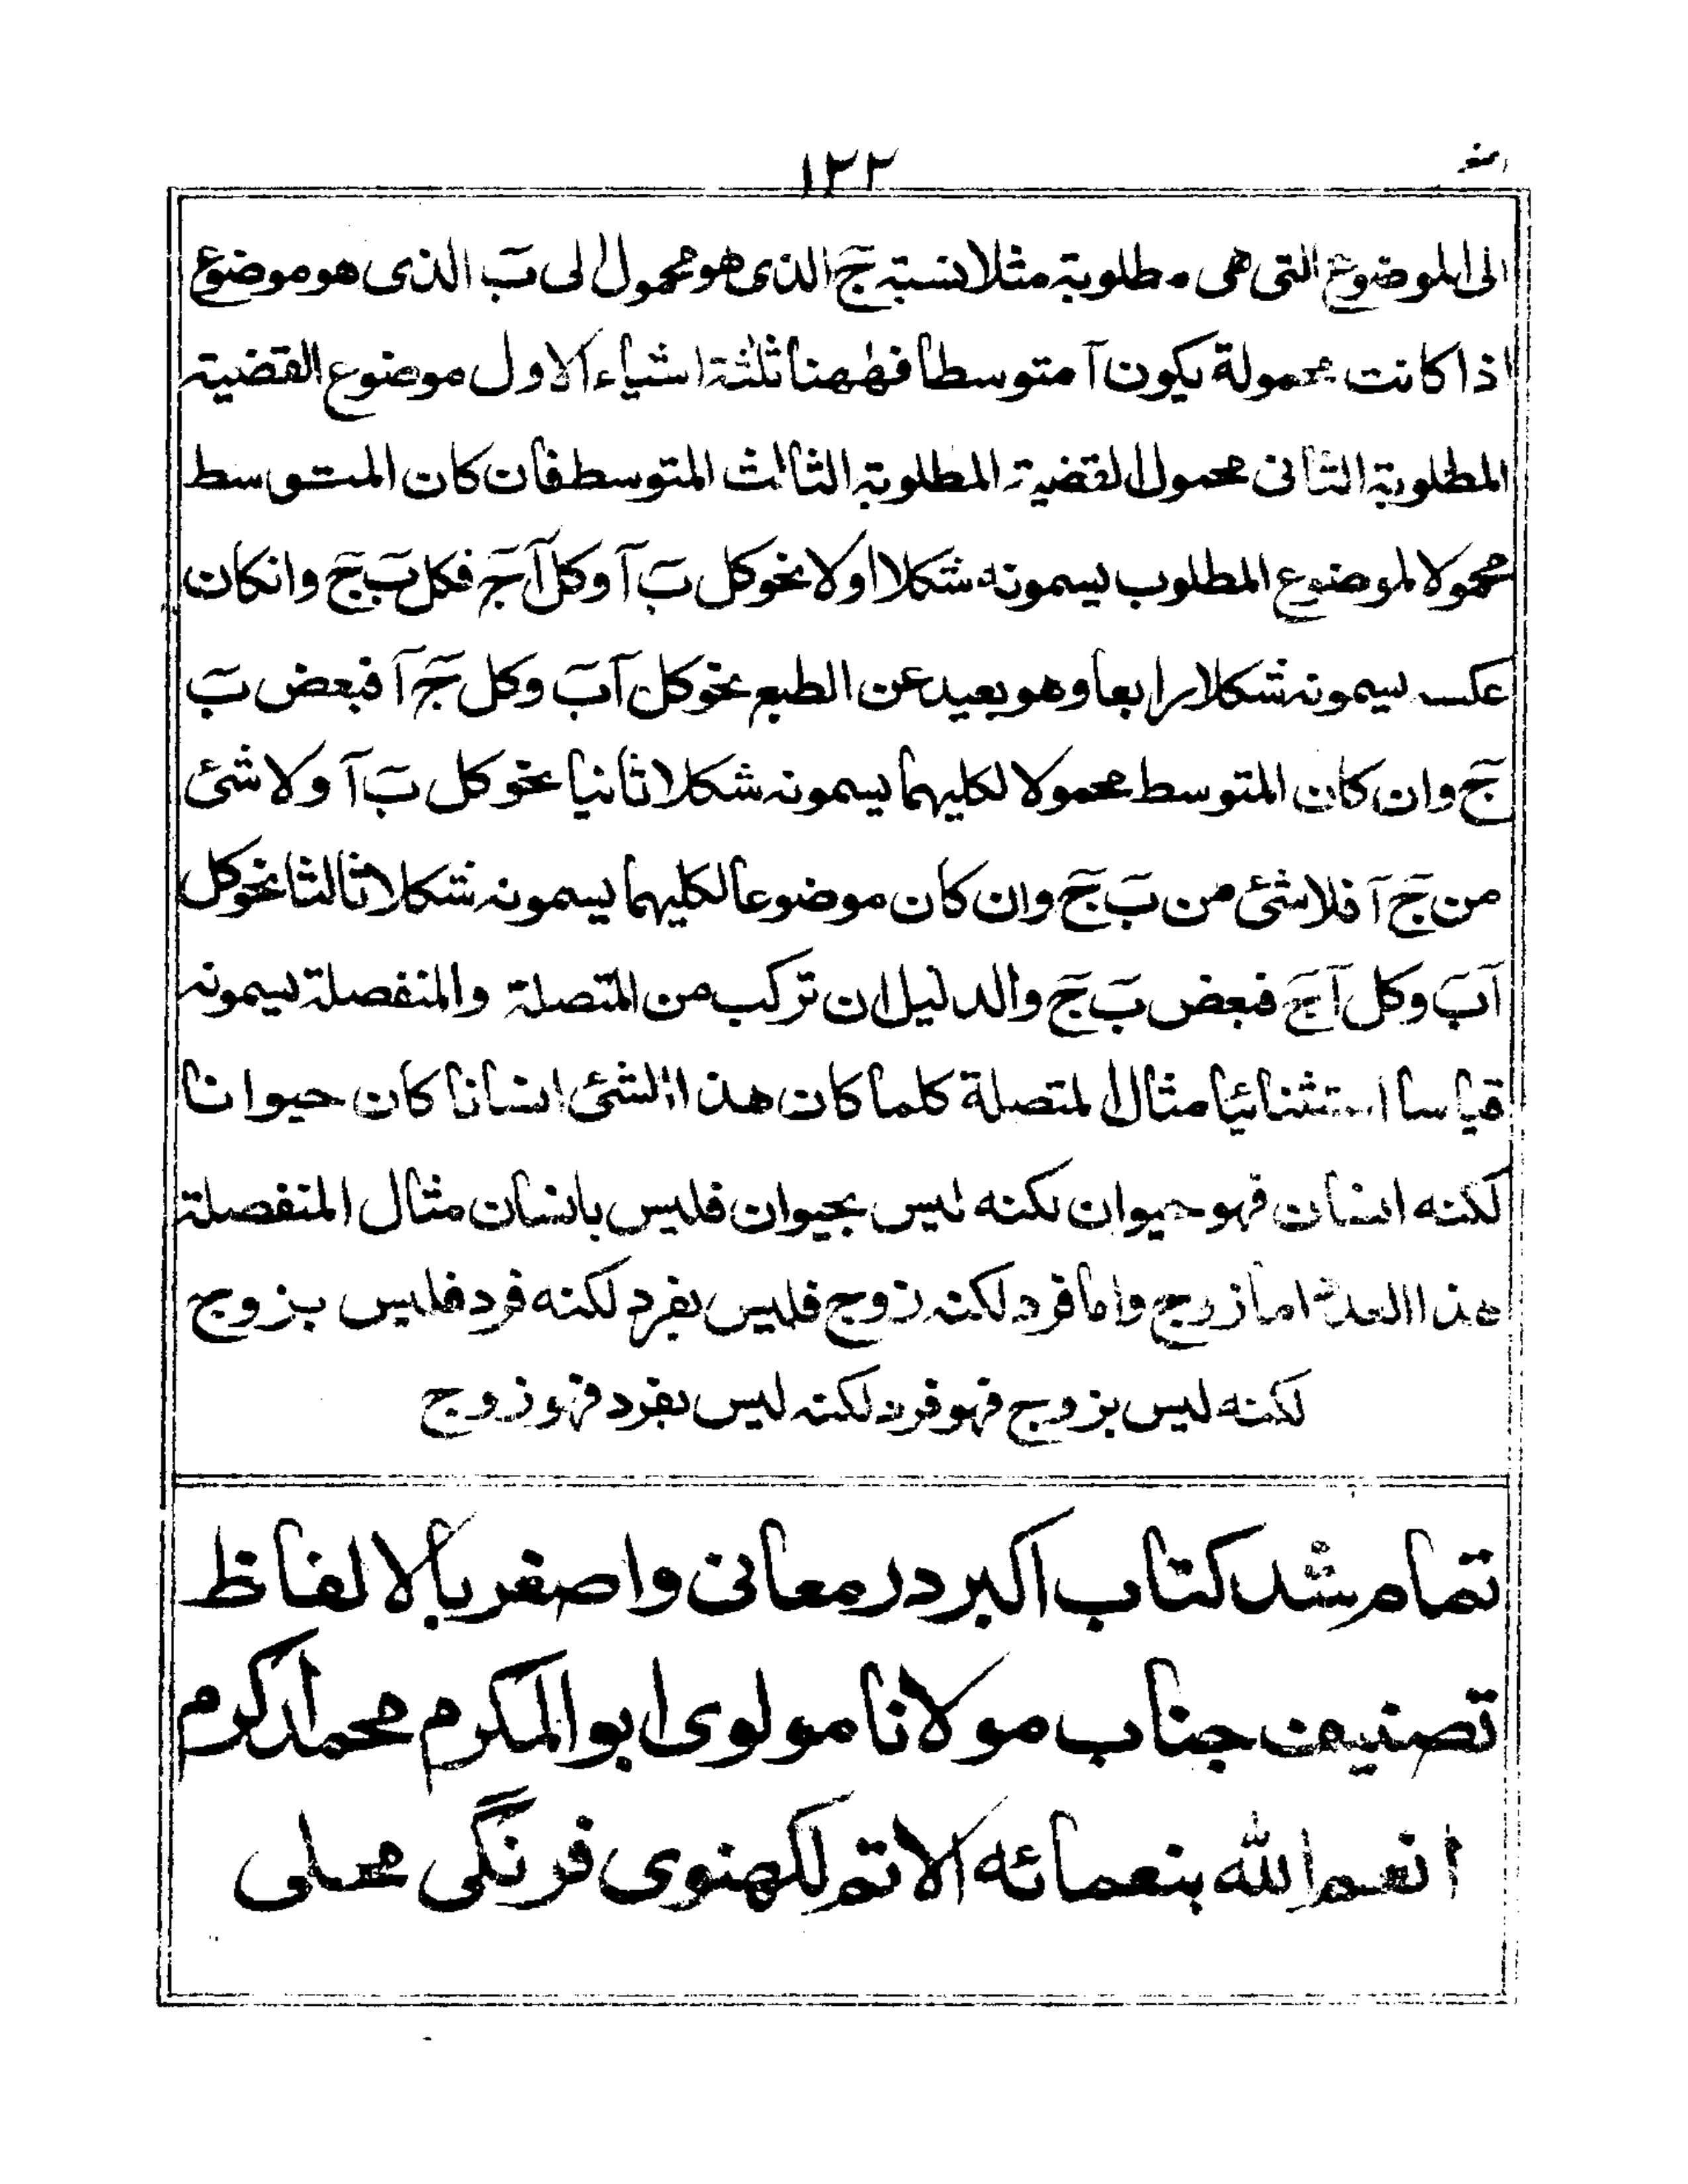 ١٣٢
الى الموضوع التى هى مطلوبة مثلا نسبة جَ الذى هو محمول الى بَ الذى هو موضوع
اذا كانت محمولة يكون آ متوسطا فههنا ثلثة اشياء الاول موضوع القضية
المطلوبة الثانى محمول القضية المطلوبة الثالث المتوسط فان كان المتوسط
محمولا لموضوع المطلوب يسمونه شكلا اولا نحو كل بَ آ وكل آ جَ فكل بَ جَ وانكان
عكسه يسمونه شكلا رابعا وهو بعيد عن الطبع نحو كل آ بَ وكل جَ آ فبعض بَ
جَ وان كان المتوسط محمولا لكليهما يسمونه شكلا ثانيا نحو كل بَ آ ولا شئ
من جَ آ فلا شئ من بَ جَ وان كان موضوعا لكليهما يسمونه شكلا ثالثا نحو كل
آ بَ وكل آ جَ فبعض بَ جَ والدليل ان تركب من المتصلة والمنفصلة يسمونه
قياسا استثنائيا مثال المتصلة كلما كان هذا الشئ انسانا كان حيوانا
لكنه انسان فهو حيوان لكنه ليس بحيوان فليس بانسان مثال المنفصلة
هذا العدد اما زوج واما فرد لكنه زوج فليس بفرد لكنه فرد فليس بزوج
لكنه ليس بزوج فهو فرد لكنه ليس بفرد فهو زوج
تمام شد كتاب اكبر در معانى واصغر بالالفاظ
تصنيف جناب مولانا مولوى ابو المكرم محمد اكرم
انعم الله بنعمائه الاتم لكهنوى فرنگى محلى